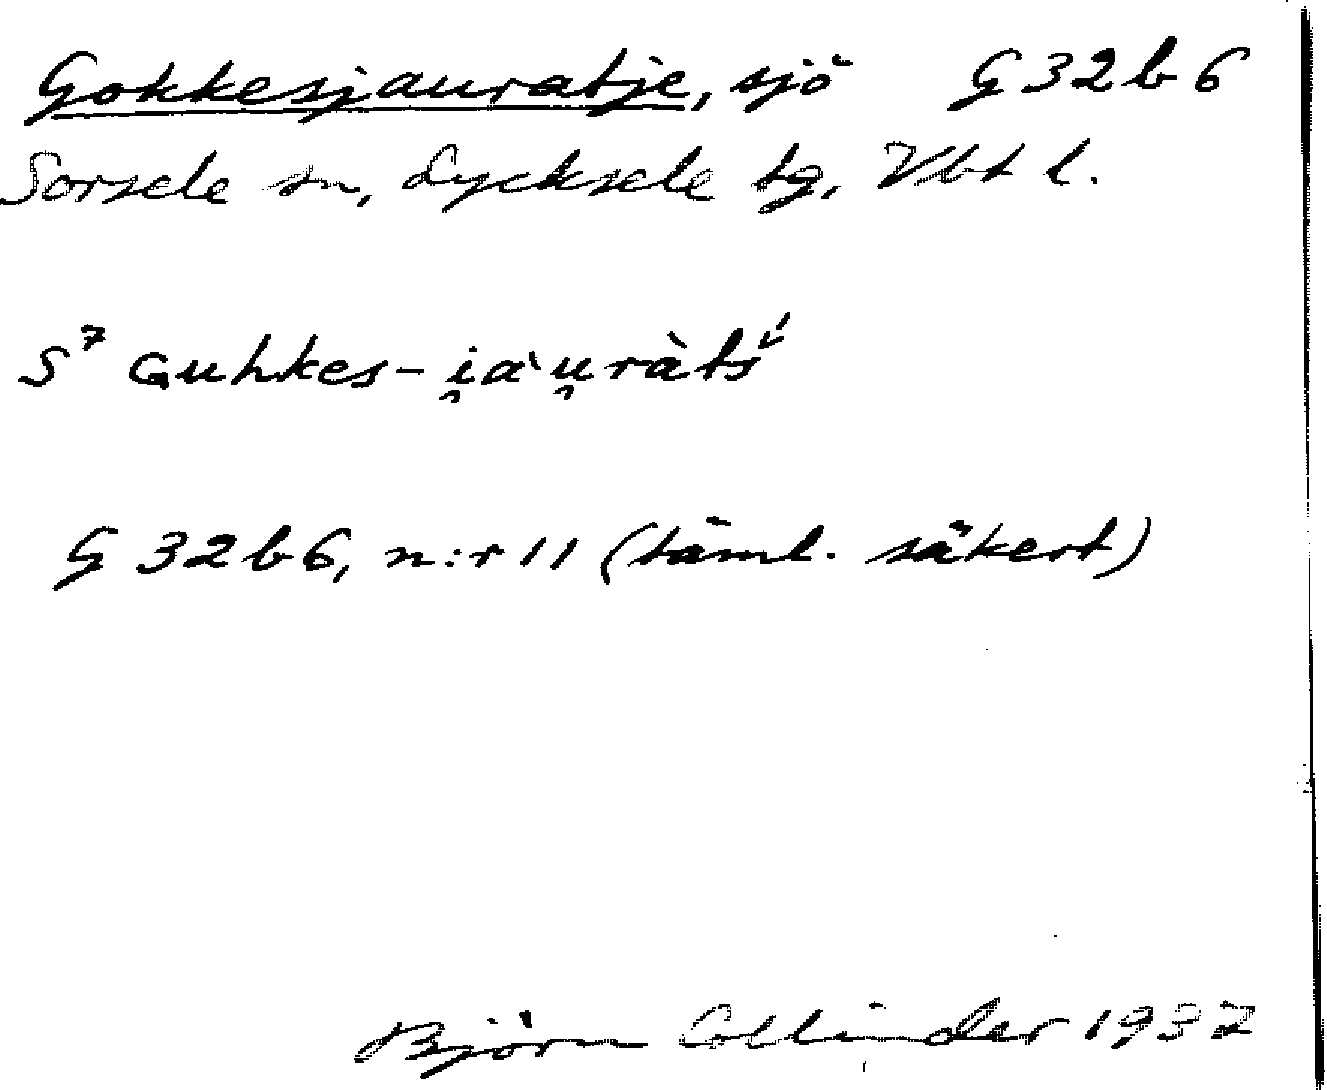 Gokkesjauratje, sjö G 32 b 6
Sorsele sn, Lycksele tg, Vbt l.
S⁷ Guhkes-i̯a̓u̯ràtś
G 32 b 6, n:r 11 (täml. säkert)
Björn Collinder 1937